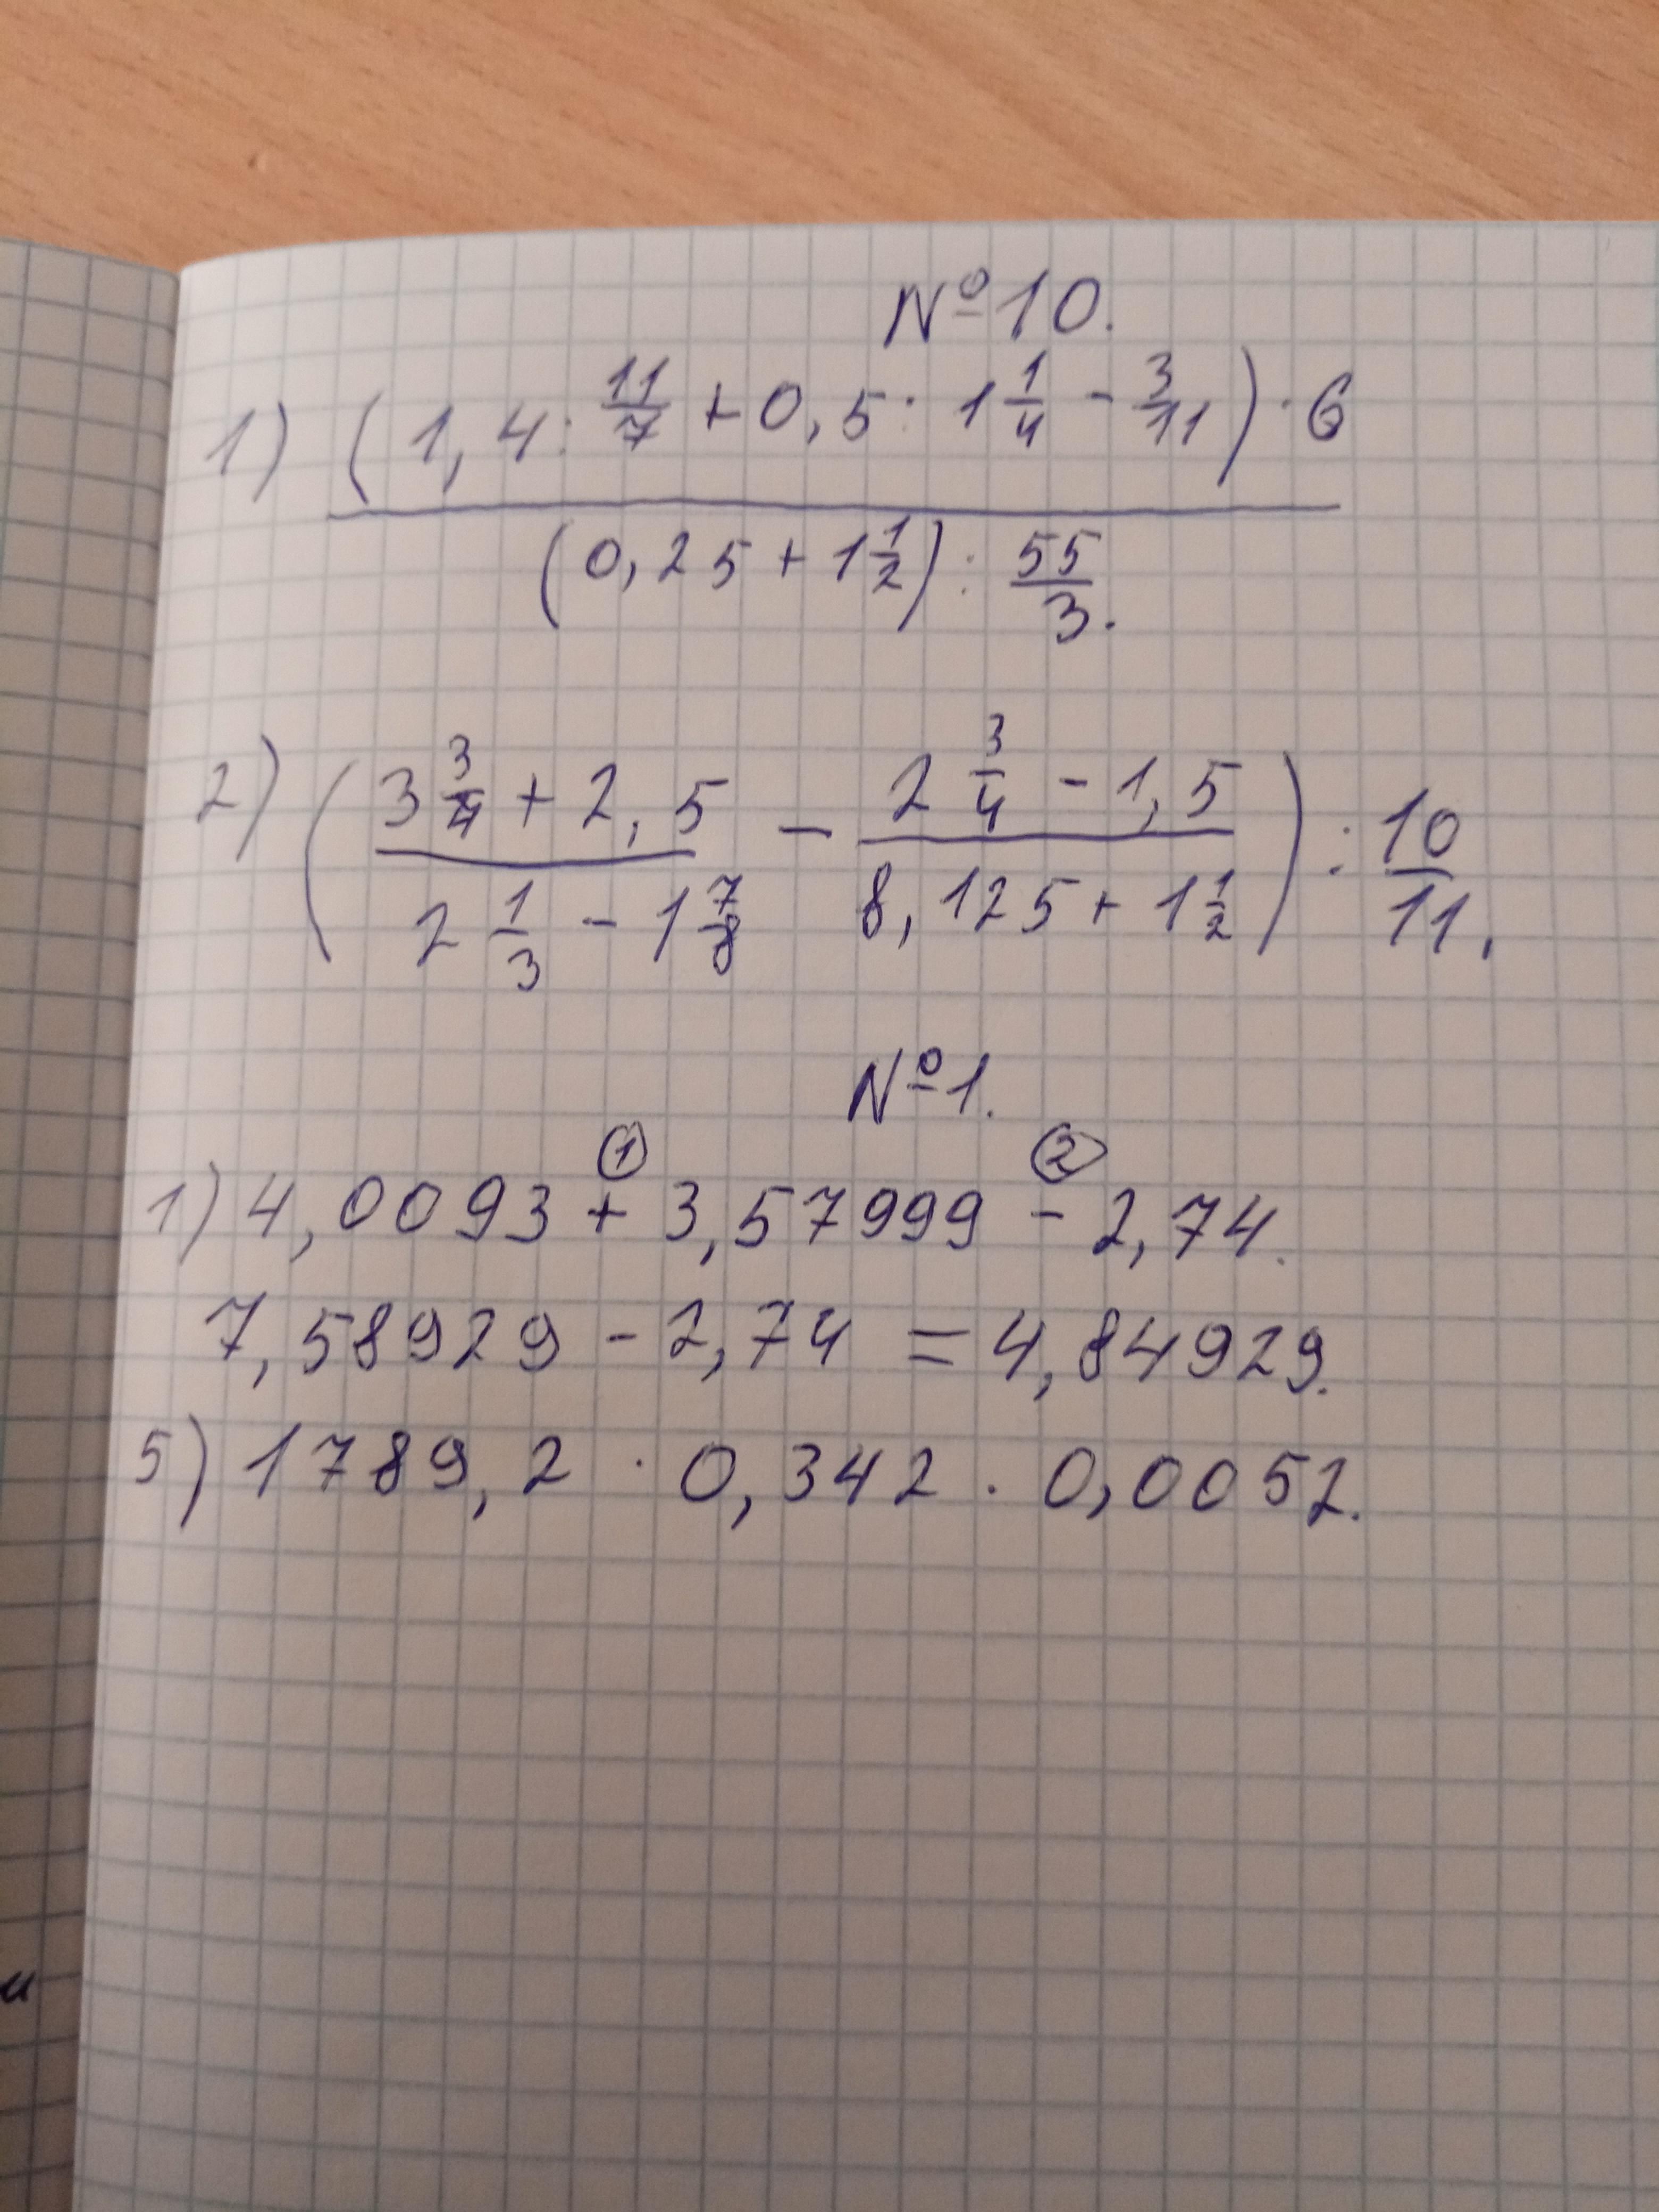 №10.
1) (1,4 : 11/7 + 0,5 : 1 1/4 - 3/11) · 6
(0,25 + 1 1/2) : 55/3.
2) ( (3 3/4 + 2,5)/(2 1/3 - 1 7/8) - (2 3/4 - 1,5)/(8,125 + 1 1/2) ) : 10/11.
№1.
① ②
1) 4,0093 + 3,57999 - 2,74.
7,58929 - 2,74 = 4,84929.
5) 1789,2 · 0,342 · 0,0052.
и